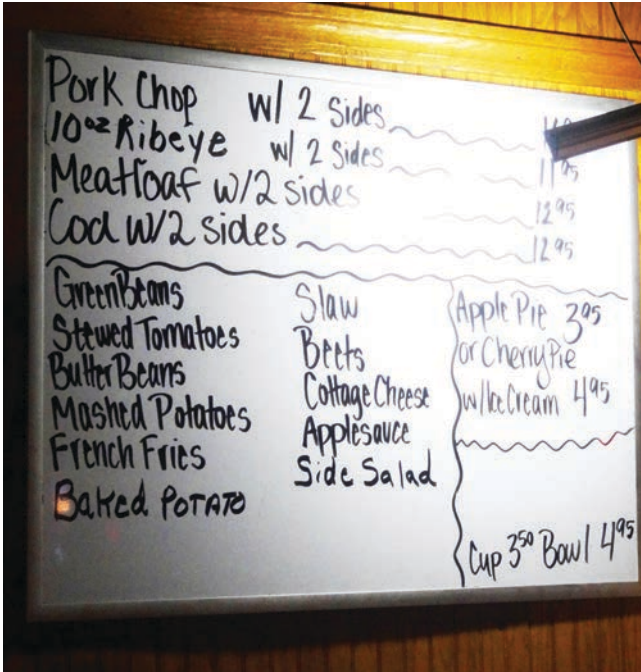 Pork Chop w/ 2 Sides
10oz Ribeye w/ 2 Sides
Meatloaf w/2 sides 12 95
Cod w/2 sides 12 95
Green Beans
Stewed Tomatoes
Butter Beans
Mashed Potatoes
French Fries
Baked POTATO
Slaw
Beets
Cottage Cheese
Applesauce
Side Salad
Apple Pie 3 95
or Cherry Pie
w/Ice Cream 4 95
Cup 3 50 Bowl 4 95